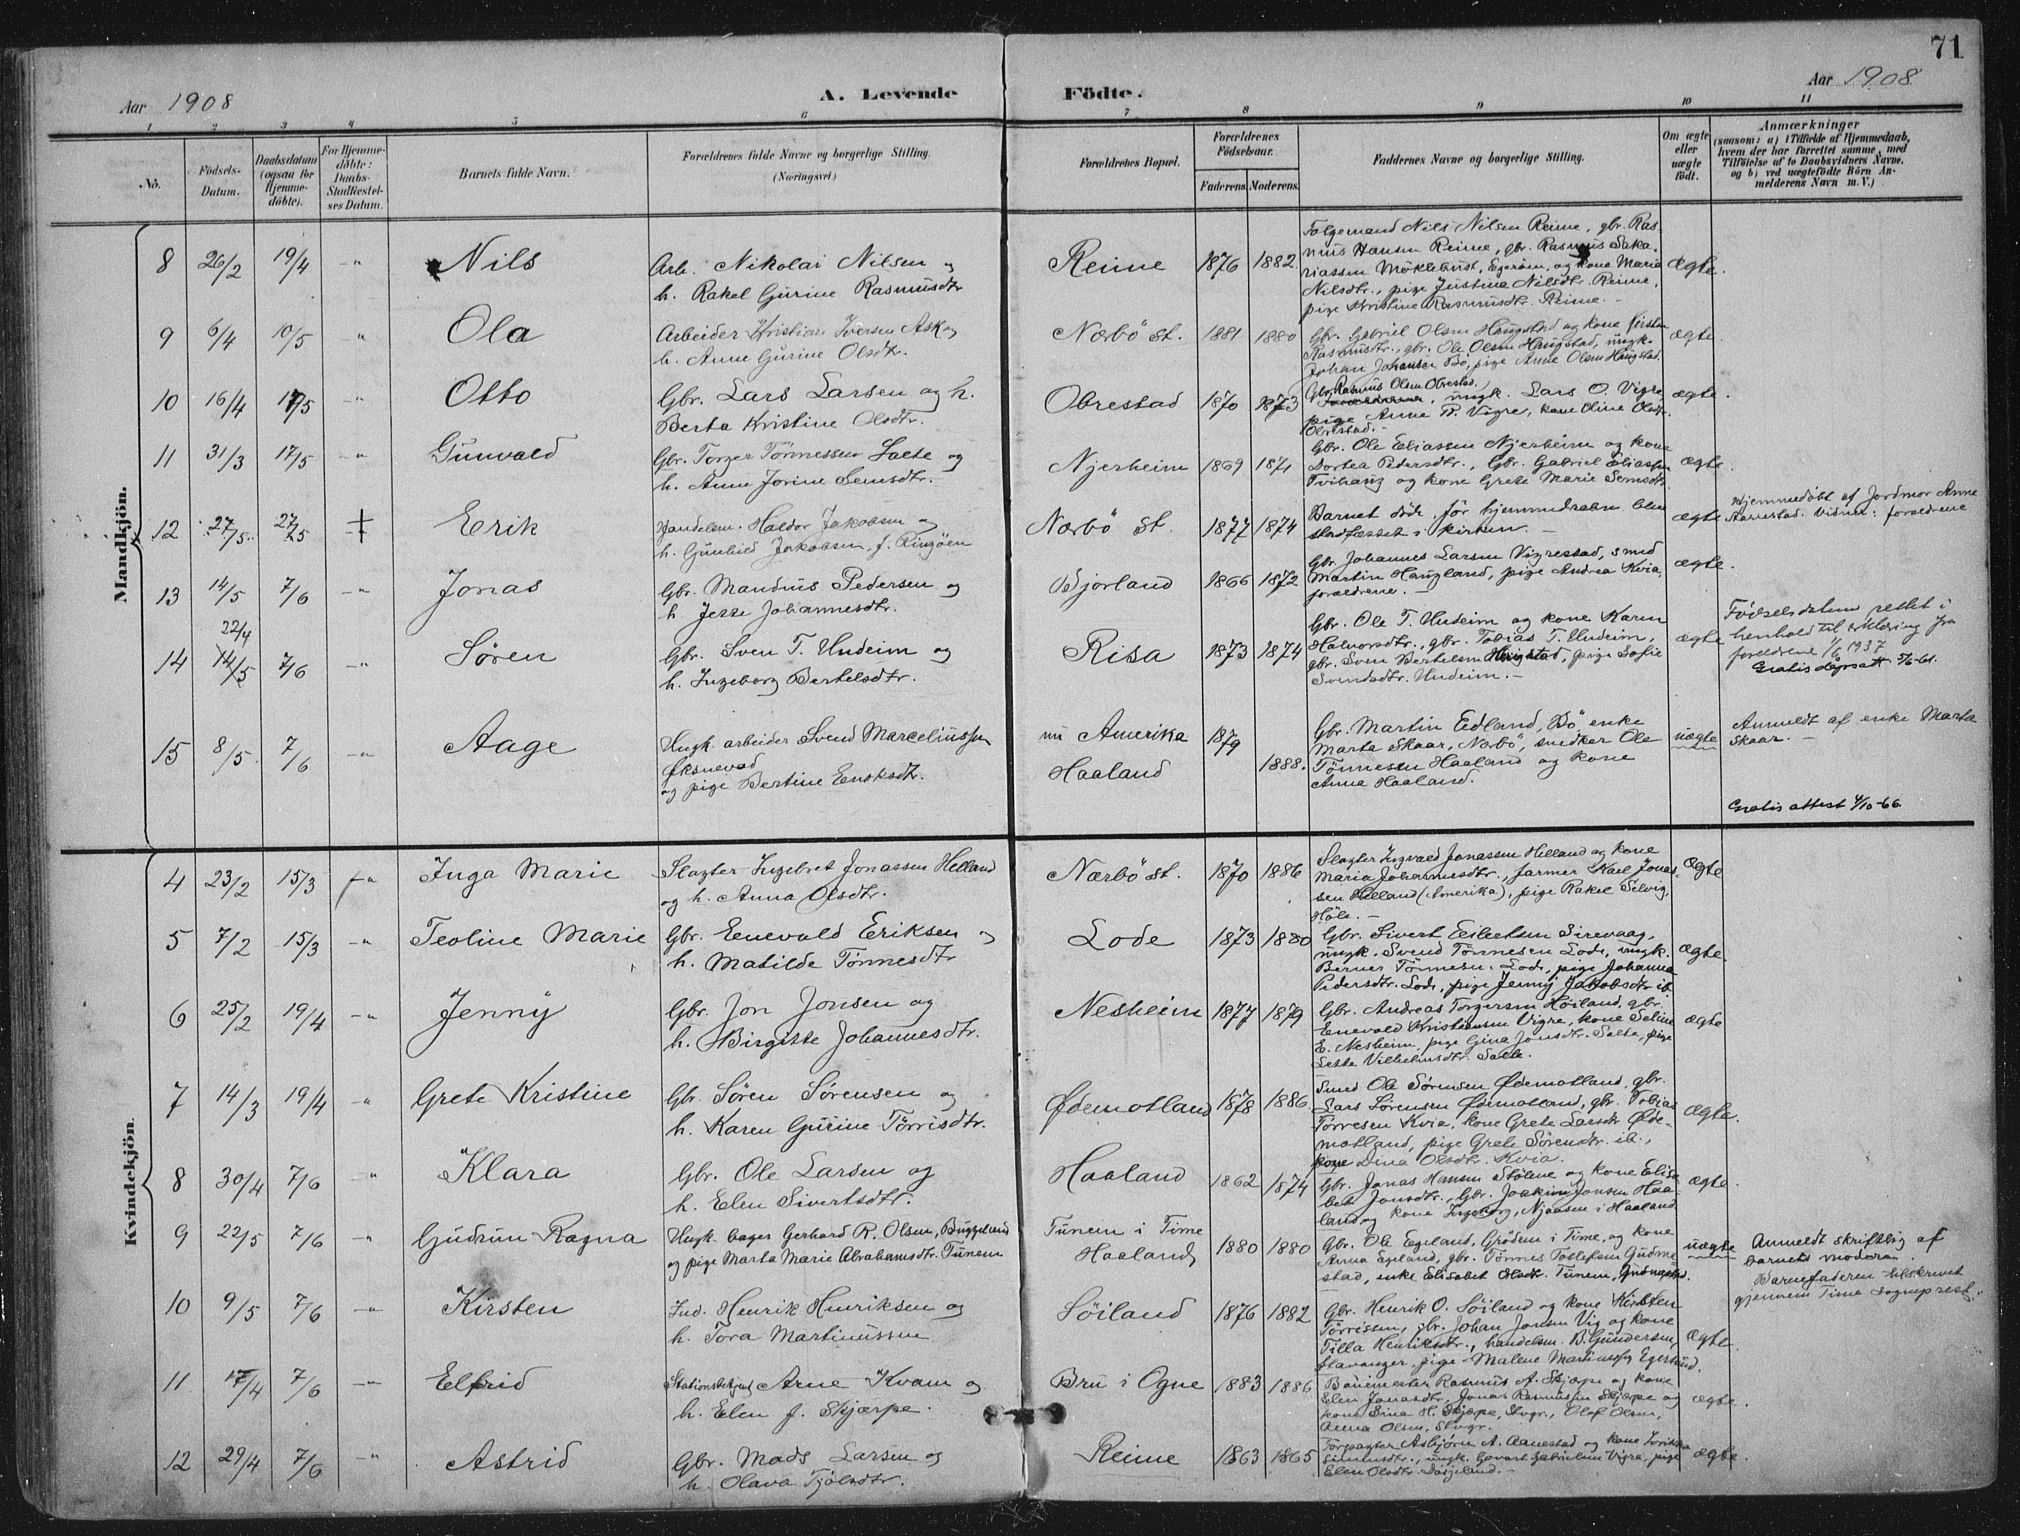 71
Aar 1908
A. Levende
Födte.
Aar 1908
1 2 3 4 5 6 7 8 9 10 11
No.
Födsels-Datum.
Daabsdatum (ogsaa for Hjemme-döbte).
For Hjemme-döbte: Daabs-Stadfæstel-ses Datum.
Barnets fulde Navn.
Forældrenes fulde Navne og borgerlige Stilling.
(Næringsvei.)
Forældrenes Bopæl.
Forældrenes Födselsaar.
Faderens. Moderens.
Faddernes Navne og borgerlige Stilling.
Om ægte eller uægte födt.
Anmærkninger
(saasom: a) i Tilfælde af Hjemmedaab, hvem der har forrettet samme, med Tilföielse af to Daabsvidners Navne. og b) ved uægtefödte Börn An-melderens Navn m. V.)
Mandkjön.
8 26/2 19/4 -"- Nils
Arb. Nikolai Nilsen og
h. Rakel Gurine Rasmusdtr
Reime 1876 1882
Følgemand Nils Nilsen Reime, gbr. Ras-
mus Hansen Reime, gbr. Rasmus Saka-
riassen Möklebust, Egeröen, og kone Maria
Nilsdtr., pige Justine Nilsdtr. Reime,
pige Kristine Rasmusdtr. Reime. -
ægte.
9 6/4 10/5 -"- Ola
Arbeider Kristian Iversen Ask og
h. Anne Gurine Olsdtr.
Nærbö st. 1881 1880
Gbr. Gabriel Olsen Haugstad og kone Kirsten
Rasmusdtr., gbr. Ole Olsen Haugstad, ungk.
Johan Johansen Bö, pige Anne Olsen Haugstad.
ægte.
10 16/4 17/5 -"- Otto
Gbr. Lars Larsen og h.
Berta Kristine Olsdtr.
Obrestad 1870 1873
Gbr. Rasmus Olsen Obrestad,
ungk. Lars O. Vigre
pige Anne R. Vigre, kone Oline Olsdtr.
Obrestad. -
ægte.
11 31/3 17/5 -"- Gunvald
Gbr. Torger Tönnessen Salte og
h. Anne Jorine Semsdtr.
Njerheim 1869 1871
Gbr. Ole Eliassen Njerheim og kone
Dortea Pedersdtr., Gbr. Gabriel Eliassen
Tvihaug og kone Grete Marie Semsdtr.
ægte.
12 27/5 27/5 Erik
Handelsm. Haldor Jakobsen og
h. Gunhild Jakobsen, f. Ringöen
Nærbö St. 1877 1874
Barnet döde för hjemmedaaben blev
stadfæstet i kirken. -
ægte
Hjemmedöbt af Jordmor Anne
Aarrestad. Vidner: forældrene
13 14/5 7/6 -"- Jonas
Gbr. Mandius Pedersen og
h. Jesse Johannesdtr.
Bjorland 1866 1872
Gbr. Johannes Larsen Vigrestad, smed
Martin Haugland, pige Andrea Kvia,
forældrene. -
ægte.
22/4
14 14/5 7/6 -"- Søren
Gbr. Sven T. Undeim og
h. Ingeborg Bertelsdtr.
Risa 1873 1874
Gbr. Ole T. Undeim og kone Karen
Halvorsdtr., gbr. Tobias T. Undeim,
gbr. Sven Bertelsen Haugstad, pige Sofie
Svendsdtr. Undeim. -
ægte
Födselsdatum rettet i
henhold til erklæring fra
foreldrene 1/6 1937
15 8/5 7/6 -"- Aage
Ungk. arbeider Svend Marceliussen
Øksnevad
og pige Bertine Enoksdtr.
nu Amerika 1879
Haaland 1888.
Gbr. Martin Edland, Bö, enke
Marta Skaar, Nærbö, snedker Ole
Tönnesen Haaland og kone
Anna Haaland.
uægte
Anmeldt af enke Marta
Skaar. -
Gratis attest 4/10-66
Kvindekjön.
4 23/2 15/3 -"- Inga Marie
Slagter Ingebret Jonassen Helland
og h. Anna Olsdtr.
Nærbö st. 1870 1886
Slagter Ingvald Jonassen Helland og kone
Maria Johannesdtr., farmer Karl Jonas-
sen Helland (Amerika), pige Rakel Selvig,
Höle. -
Ægte
5 7/2 15/3 -"- Teoline Marie
Gbr. Enevald Eriksen og
h. Matilde Tönnesdtr
Lode 1873 1880
Gbr. Sivert Eilertsen Sirevaag,
ungk. Svend Tönnesen Lode, ungk.
Berner Tönnesen Lode, pige Johanna
Pedersdtr. Lode, pige Jenny Jakobsdtr ib.
ægte.
6 25/2 19/4 -"- Jenny
Gbr. Jon Jonsen og
h. Birgitte Johannesdtr.
Nesheim 1877 1879
Gbr. Andreas Torgersen Höiland, gbr.
Enevald Kristiansen Vigre, kone Seline
E. Nesheim, pige Gina Jonsdtr. Salte, pige
Sette Vilhelmsdtr. Salte.
ægte
7 14/3 19/4 -"- Grete Kristine
Gbr. Sören Sörensen og
h. Karen Gurine Törrisdtr.
Ødemotland 1878 1886
Smed Ole Sörensen Ødemotland, gbr.
Lars Sörensen Ødemotland, gbr. Tobias
Törresen Kvia, kone Grete Larsdtr Øde-
motland, pige Grete Sörensdtr. ib.,
kone Dina Olsdtr. Kvia.
ægte.
8 30/4 7/6 -"- Klara
Gbr. Ole Larsen og
h. Elen Sivertsdtr.
Haaland 1862 1874
Gbr. Jonas Hansen Stölene og kone Elisa-
bet Jonsdtr., Gbr. Joakim Jonsen Haa-
land og kone Ingeborg, Njaasen i Haaland
ægte.
9 22/5 7/6 -"- Gudrun Ragna
Ungk. bager Gerhard R. Olsen, Buggeland
og pige Marta Marie Abrahamsdtr. Tunem
Tunem i Time
Haaland 1880 1880
Gbr. Ole Egeland, Grödem i Time, og kone
Anna Egeland, gbr. Tönnes Tollefsen Gudme-
stad, enke Elisabet Olsdtr. Tunem, Gudmestad.
uægte
Anmeldt skriftlig af
barnets moder.
Barnefaderen tilskrevet
gjennem Time sogneprest.
10 9/5 7/6 -"- Kirsten
Ind. Henrik Henriksen og
h. Tora Martinussen
Söiland 1876 1882
Gbr. Henrik O. Söiland og kone Kirsten
Törrissen, gbr. Johan Jonsen Vig og kone
Tilla Henriksdtr., handelsm. B. Gundersen,
Stavanger, pige Malene Martinussen Egersund.
ægte.
11 17/4 7/6 -"- Elfrid
Stationsbetjent Arne Kvam og
h. Elen f. Skjærpe.
Bru i Ogne 1883 1886
Banemester Rasmus A. Skjærpe og kone
Elen Jonasdtr. Jonas Rasmussen Skjærpe og
kone Sina H. Skjærpe, Stvgr., Olaf Olsen,
Anna Olsen, Stvgr.
ægte.
12 29/4 7/6 -"- Astrid
Gbr. Mads Larsen og
h. Olava Tjölsdtr.
Reime 1863 1865
Forpagter Asbjörn A. Aanestad og kone
Simonsdtr., ungk. Govart Gabrielsen Vigre, pige
Elen Olsdtr.
ægte.